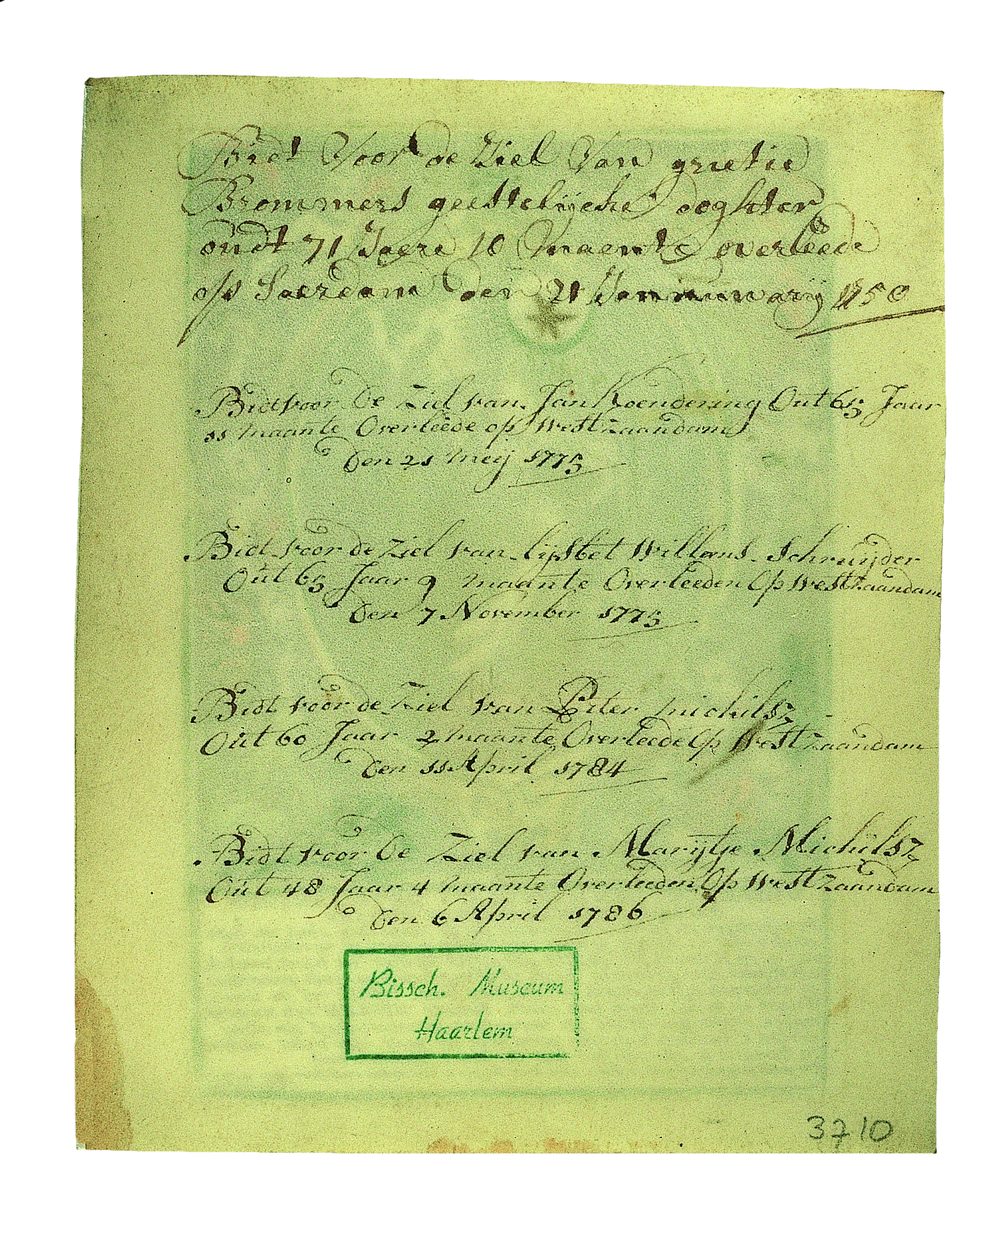 Bidt Voor de Ziel Van grietie
Brommers geestelijcke doghter
oudt 71 Jaere 10 Maente overleede
op Saerdam den 21 Januuwarij 1750
Bidt voor de Ziel van Jan Koendering Out 65 Jaar
11 maante Overleede op Westzaandam
Den 21 meij 1775
Bidt voor de Ziel van lijsbet Willems Schruijder
Out 65 Jaar 9 maante Overleeden Op Westzaandam
Den 7 November 1775
Bidt voor de Ziel van Pieter michilsz
Out 60 Jaar 2 maante Overleede Op Westzaandam
Den 11 April 1784
Bidt voor de Ziel van Marijtje Michilsz
Out 48 Jaar 4 maante Overleeden Op Westzaandam
Den 6 April 1786
Bissch. Museum
Haarlem
3710